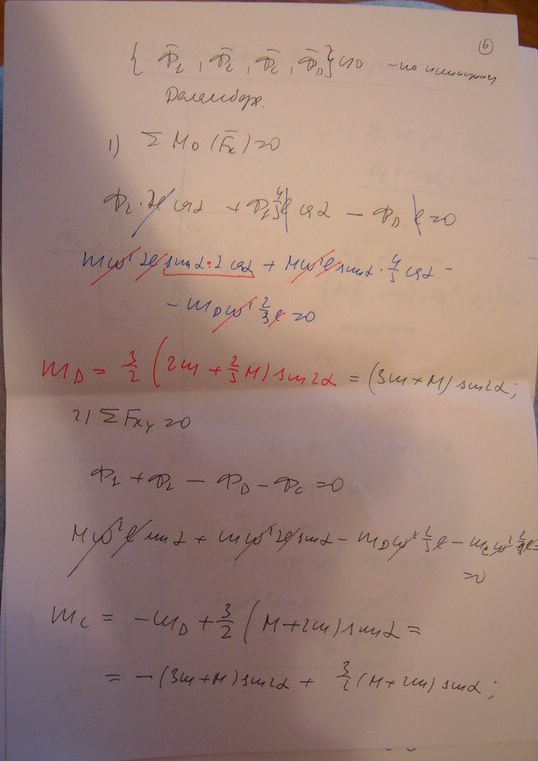 6
{ Φ̄₁, Φ̄₂, Φ̄₂, Φ̄_D } ∾ 0 – по
Даламбера.
1) Σ M₀ (F̄ₖ) = 0
Φ₂ · 2l cos α + Φ₁ 4/3 l cos α – Φ_D l = 0
mω² 2l sin α · 2 cos α + Mω² l sin α · 4/3 cos α –
– m_D ω² 2/3 l = 0
m_D = 3/2 (2m + 2/3 M) sin 2α = (3m + M) sin 2α;
2) Σ Fₖᵧ = 0
Φ₁ + Φ₂ – Φ_D – Φ_C = 0
Mω² l sin α + mω² 2l sin α – m_D ω² 2/3 l – m_C ω² 2/3 l =
= 0
m_C = – m_D + 3/2 (M + 2m) sin α =
= – (3m + M) sin 2α + 3/2 (M + 2m) sin α;